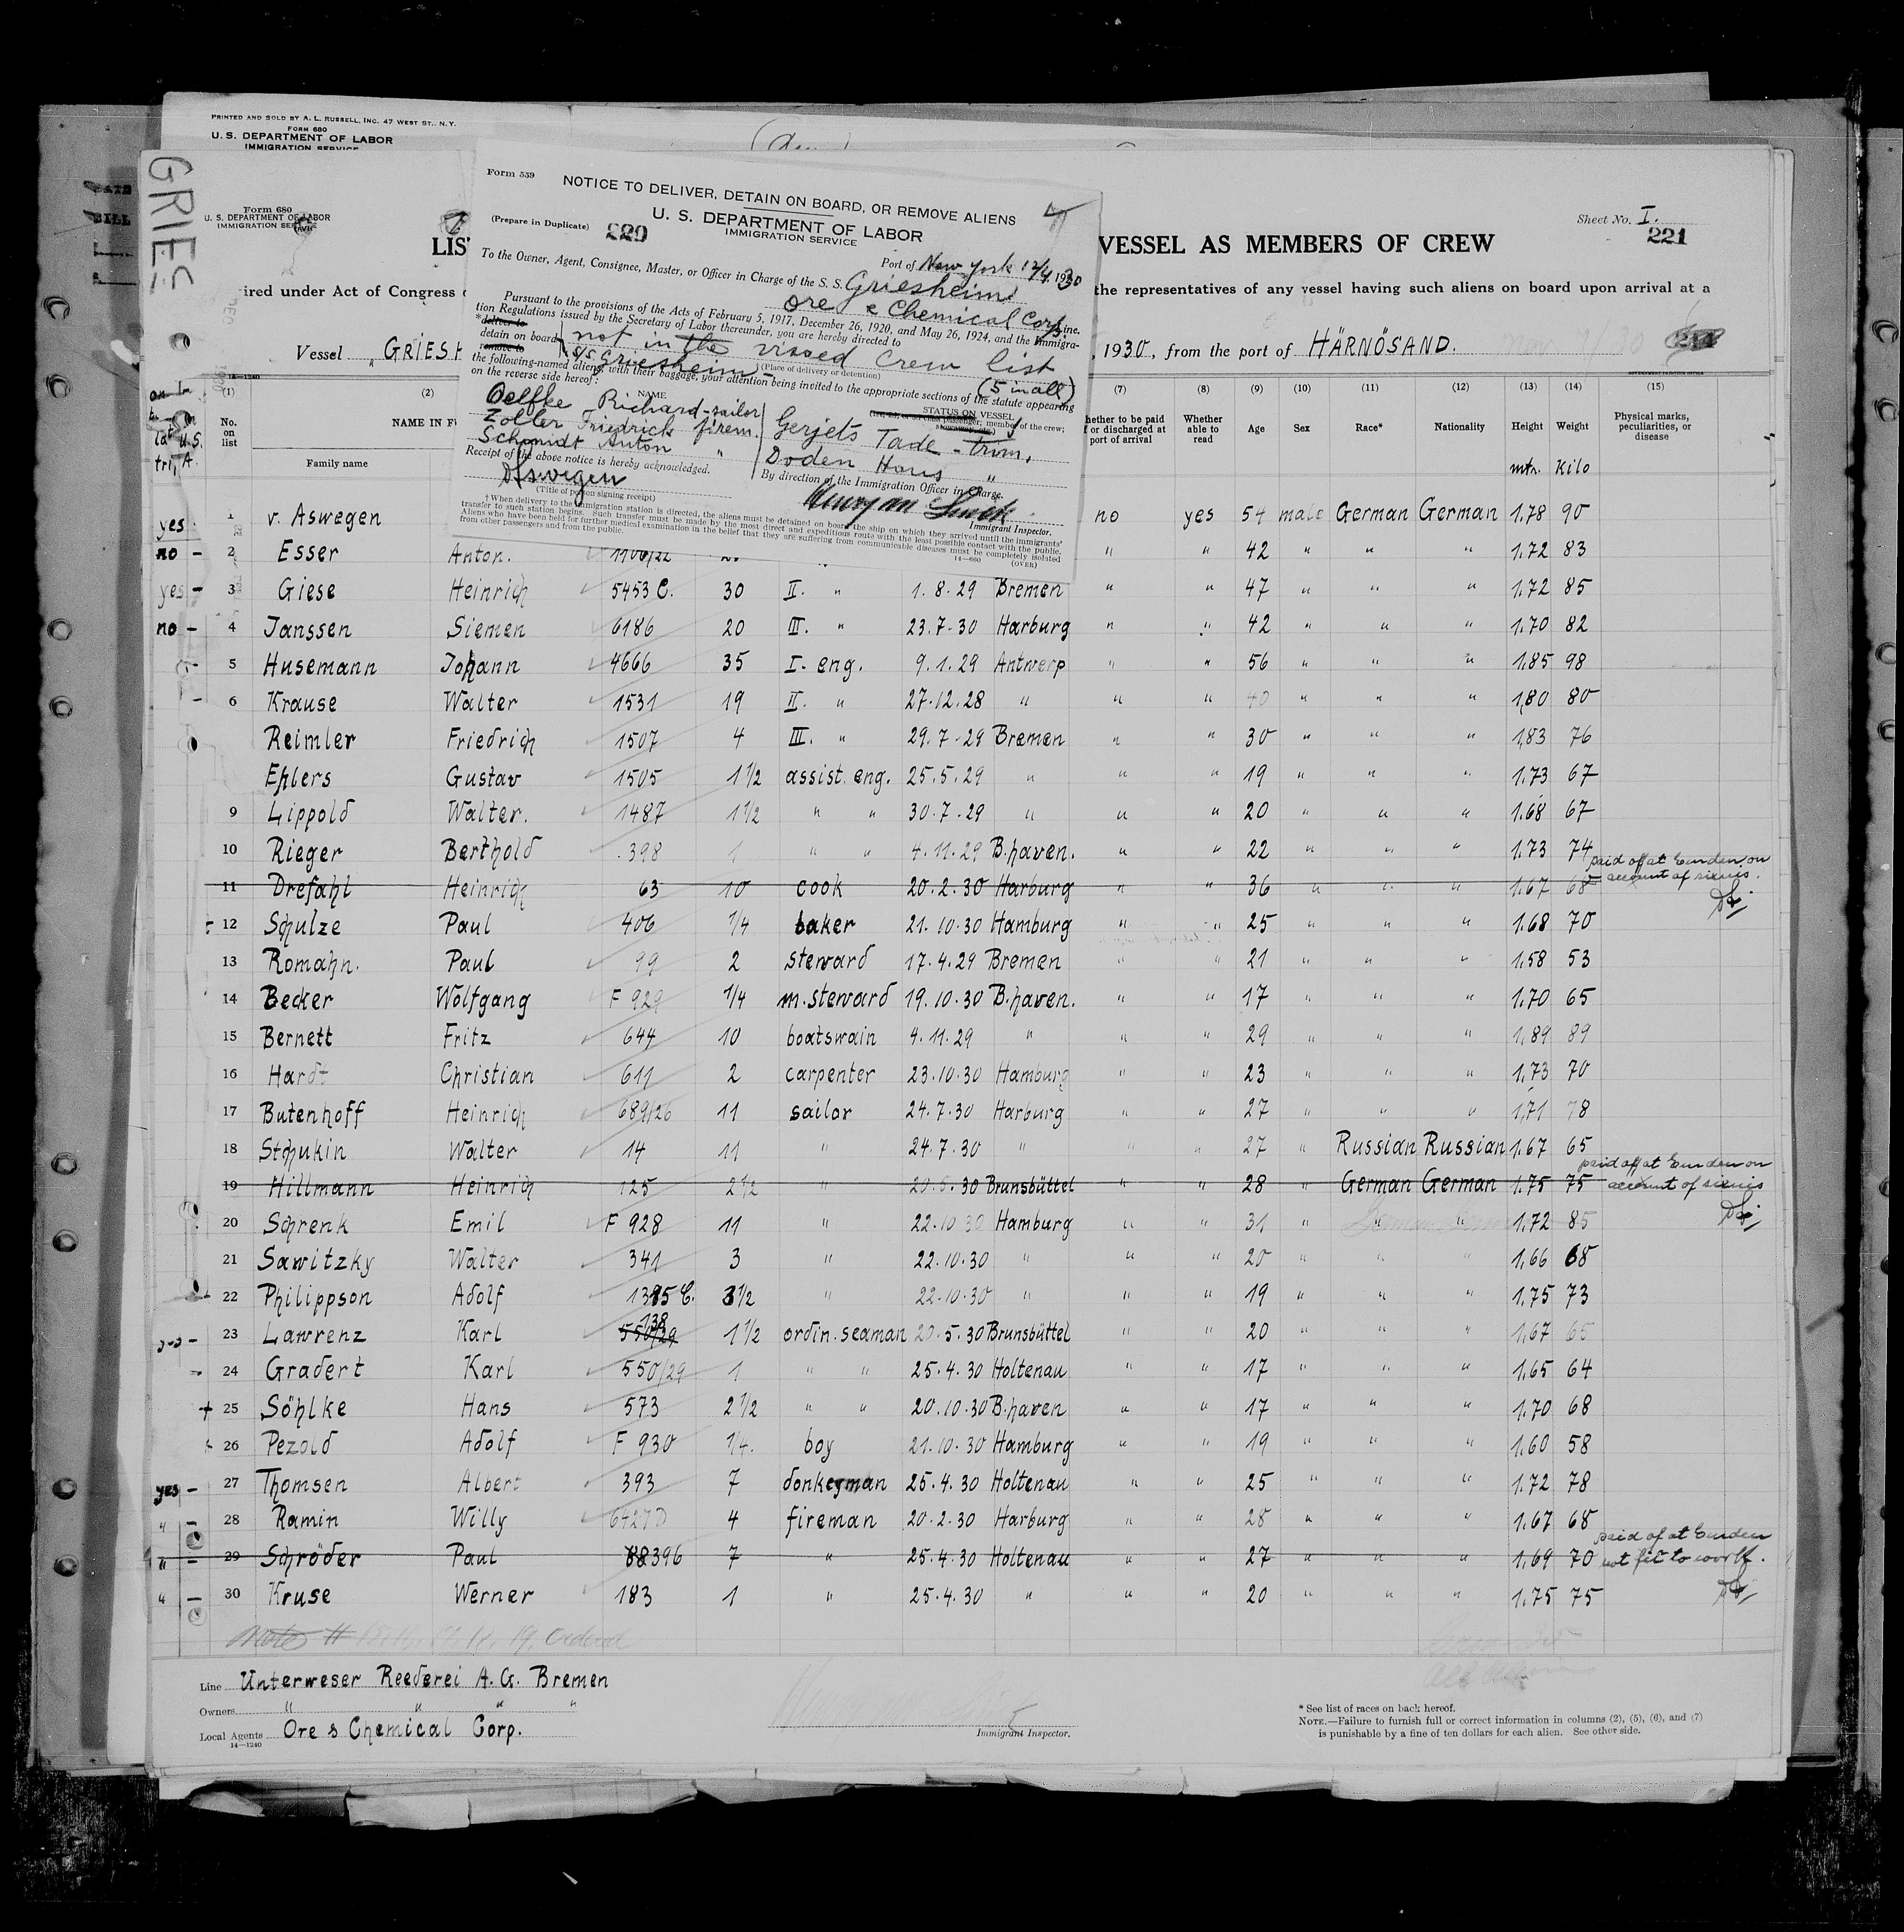 PRINTED AND SOLD BY A. L. RUSSELL, INC. 47 WEST ST., N.Y.
FORM 680
U. S. DEPARTMENT OF LABOR
IMMIGRATION SERVICE
GRIES
Form 680
U. S. DEPARTMENT OF LABOR
IMMIGRATION SERVICE
Sheet No. I.
221
LIS
VESSEL AS MEMBERS OF CREW
ired under Act of Congress
the representatives of any vessel having such aliens on board upon arrival at a
Vessel „GRIESH
, 1930, from the port of HÄRNÖSAND.
Form 559
NOTICE TO DELIVER, DETAIN ON BOARD, OR REMOVE ALIENS
(Prepare in Duplicate)
220
U. S. DEPARTMENT OF LABOR
IMMIGRATION SERVICE
Port of New York 12/4, 1930
To the Owner, Agent, Consignee, Master, or Officer in Charge of the S. S. Griesheim
Ore & Chemical Corp Line.
Pursuant to the provisions of the Acts of February 5, 1917, December 26, 1920, and May 26, 1924, and the Immigra-
tion Regulations issued by the Secretary of Labor thereunder, you are hereby directed to
*deliver to
detain on board
remove to
not in the vised crew list
S/S Griesheim
(Place of delivery or detention)
(5 in all)
the following-named aliens, with their baggage, your attention being invited to the appropriate sections of the statute appearing
on the reverse side hereof:
NAME
STATUS ON VESSEL
Oelfke Richard - sailor
Zoller Friedrick firem.
Schmidt Anton "
Gerjets Tade - trim.
Doden Hans "
Receipt of the above notice is hereby acknowledged.
By direction of the Immigration Officer in Charge.
Aswegen
(Title of person signing receipt)
Immigrant Inspector.
† When delivery to the immigration station is directed, the aliens must be detained on board the ship on which they arrived until the immigrants'
transfer to such station begins. Such transfer must be made by the most direct and expeditious route with the least possible contact with the public.
Aliens who have been held for further medical examination in the belief that they are suffering from communicable diseases must be completely isolated
from other passengers and from the public.
14—660
(OVER)
14—1240
(1) (2) (7) (8) (9) (10) (11) (12) (13) (14) (15)
No. on list
NAME IN F
Family name
hether to be paid
or discharged at
port of arrival
Whether able to read
Age Sex Race* Nationality Height Weight
Physical marks, peculiarities, or disease
mtr. Kilo
yes 1 v. Aswegen no yes 54 male German German 1.78 90
no - 2 Esser Anton. 1106/22 " " 42 " " " 1.72 83
yes - 3 Giese Heinrich 5453 C. 30 II. " 1.8.29 Bremen " " 47 " " " 1.72 85
no - 4 Janssen Siemen 6186 20 III. " 23.7.30 Harburg " " 42 " " " 1.70 82
- 5 Husemann Johann 4666 35 I. eng. 9.1.29 Antwerp " " 56 " " " 1.85 98
- 6 Krause Walter 1531 19 II. " 27.12.28 " " " 40 " " " 1.80 80
Reimler Friedrich 1507 4 III. " 29.7.29 Bremen " " 30 " " " 1.83 76
Ehlers Gustav 1505 1½ assist. eng. 25.5.29 " " " 19 " " " 1.73 67
9 Lippold Walter. 1487 1½ " " 30.7.29 " " " 20 " " " 1.68 67
10 Rieger Berthold 398 1 " " 4.11.29 B.haven. " " 22 " " " 1.73 74
11 Drefahl Heinrich 63 10 cook 20.2.30 Harburg " " 36 " " " 1.67 68 paid off at Emden on
account of
12 Schulze Paul 406 1/4 baker 21.10.30 Hamburg " " 25 " " " 1.68 70
13 Romahn. Paul 99 2 steward 17.4.29 Bremen " " 21 " " " 1.58 53
14 Becker Wolfgang F 929 1/4 m. steward 19.10.30 B.haven. " " 17 " " " 1.70 65
15 Bernett Fritz 644 10 boatswain 4.11.29 " " " 29 " " " 1.89 89
16 Hardt Christian 611 2 carpenter 23.10.30 Hamburg " " 23 " " " 1.73 70
17 Butenhoff Heinrich 689/26 11 sailor 24.7.30 Harburg " " 27 " " " 1.71 78
18 Stchukin Walter 14 11 " 24.7.30 " " " 27 " Russian Russian 1.67 65
19 Hillmann Heinrich 125 2½ " 20.5.30 Brunsbüttel " " 28 " German German 1.75 75 paid off at Emden on
account of
20 Schrenk Emil F 928 11 " 22.10.30 Hamburg " " 31 " " " 1.72 85
21 Sawitzky Walter 341 3 " 22.10.30 " " " 20 " " " 1.66 68
22 Philippson Adolf 1385 C. 3½ " 22.10.30 " " " 19 " " " 1.75 73
23 Lawrenz Karl 550/29 138 1½ ordin. seaman 20.5.30 Brunsbüttel " " 20 " " " 1.67 65
24 Gradert Karl 550/29 1 " " 25.4.30 Holtenau " " 17 " " " 1.65 64
25 Söhlke Hans 573 2½ " " 20.10.30 B.haven " " 17 " " " 1.70 68
26 Pezold Adolf F 930 1/4. boy 21.10.30 Hamburg " " 19 " " " 1.60 58
yes - 27 Thomsen Albert 393 7 donkeyman 25.4.30 Holtenau " " 25 " " " 1.72 78
" - 28 Ramin Willy 6427D 4 fireman 20.2.30 Harburg " " 28 " " " 1.67 68
" - 29 Schröder Paul 396 7 " 25.4.30 Holtenau " " 27 " " " 1.69 70 paid of at Emden
not fit to work.
" - 30 Kruse Werner 183 1 " 25.4.30 " " " 20 " " " 1.75 75
Line Unterweser Reederei A. G. Bremen
Owners " " " "
Local Agents Ore & Chemical Corp.
14—1240
Immigrant Inspector.
* See list of races on back hereof.
NOTE.—Failure to furnish full or correct information in columns (2), (5), (6), and (7)
is punishable by a fine of ten dollars for each alien. See other side.